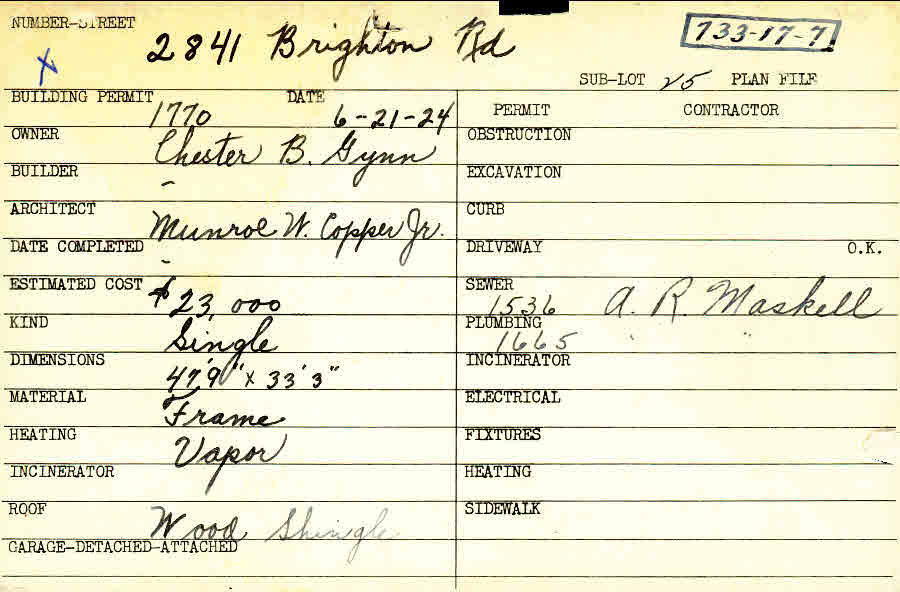 NUMBER-STREET 2841 Brighton Rd 733-17-7
X SUB-LOT 25 PLAN FILE
BUILDING PERMIT 1770 DATE 6-21-24
OWNER Chester B. Gynn
BUILDER -
ARCHITECT Munroe W. Copper Jr.
DATE COMPLETED -
ESTIMATED COST $23,000
KIND Single
DIMENSIONS 47'9" x 33'3"
MATERIAL Frame
HEATING Vapor
INCINERATOR
ROOF Wood Shingle
GARAGE-DETACHED-ATTACHED
PERMIT CONTRACTOR
OBSTRUCTION
EXCAVATION
CURB
DRIVEWAY O.K.
SEWER 1536 A. R. Maskell
PLUMBING 1665 " "
INCINERATOR
ELECTRICAL
FIXTURES
HEATING
SIDEWALK